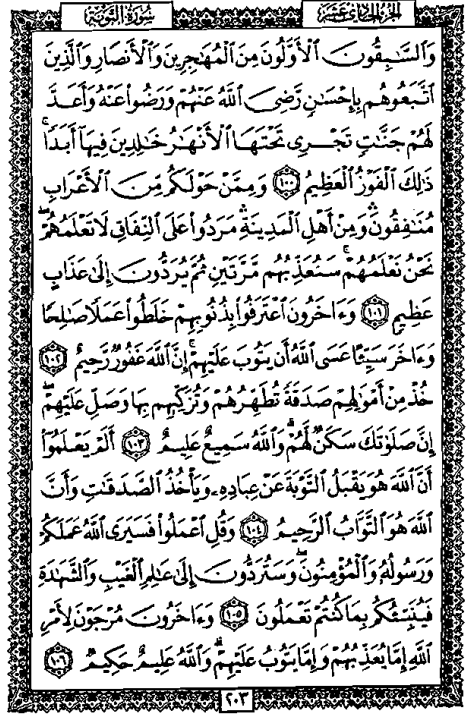 سُورَةُ التَّوْبَةِ
الجزء الحادي عشر
وَٱلسَّـٰبِقُونَ ٱلْأَوَّلُونَ مِنَ ٱلْمُهَـٰجِرِينَ وَٱلْأَنصَارِ وَٱلَّذِينَ
ٱتَّبَعُوهُم بِإِحْسَـٰنٍ رَّضِىَ ٱللَّهُ عَنْهُمْ وَرَضُوا۟ عَنْهُ وَأَعَدَّ
لَهُمْ جَنَّـٰتٍ تَجْرِى تَحْتَهَا ٱلْأَنْهَـٰرُ خَـٰلِدِينَ فِيهَآ أَبَدًا ۚ
ذَٰلِكَ ٱلْفَوْزُ ٱلْعَظِيمُ ١٠٠ وَمِمَّنْ حَوْلَكُم مِّنَ ٱلْأَعْرَابِ
مُنَـٰفِقُونَ ۖ وَمِنْ أَهْلِ ٱلْمَدِينَةِ ۖ مَرَدُوا۟ عَلَى ٱلنِّفَاقِ لَا تَعْلَمُهُمْ ۖ
نَحْنُ نَعْلَمُهُمْ ۚ سَنُعَذِّبُهُم مَّرَّتَيْنِ ثُمَّ يُرَدُّونَ إِلَىٰ عَذَابٍ
عَظِيمٍ ١٠١ وَءَاخَرُونَ ٱعْتَرَفُوا۟ بِذُنُوبِهِمْ خَلَطُوا۟ عَمَلًا صَـٰلِحًا
وَءَاخَرَ سَيِّئًا عَسَى ٱللَّهُ أَن يَتُوبَ عَلَيْهِمْ ۚ إِنَّ ٱللَّهَ غَفُورٌ رَّحِيمٌ ١٠٢
خُذْ مِنْ أَمْوَٰلِهِمْ صَدَقَةً تُطَهِّرُهُمْ وَتُزَكِّيهِم بِهَا وَصَلِّ عَلَيْهِمْ ۖ
إِنَّ صَلَوٰتَكَ سَكَنٌ لَّهُمْ ۗ وَٱللَّهُ سَمِيعٌ عَلِيمٌ ١٠٣ أَلَمْ يَعْلَمُوٓا۟
أَنَّ ٱللَّهَ هُوَ يَقْبَلُ ٱلتَّوْبَةَ عَنْ عِبَادِهِۦ وَيَأْخُذُ ٱلصَّدَقَـٰتِ وَأَنَّ
ٱللَّهَ هُوَ ٱلتَّوَّابُ ٱلرَّحِيمُ ١٠٤ وَقُلِ ٱعْمَلُوا۟ فَسَيَرَى ٱللَّهُ عَمَلَكُمْ
وَرَسُولُهُۥ وَٱلْمُؤْمِنُونَ ۖ وَسَتُرَدُّونَ إِلَىٰ عَـٰلِمِ ٱلْغَيْبِ وَٱلشَّهَـٰدَةِ
فَيُنَبِّئُكُم بِمَا كُنتُمْ تَعْمَلُونَ ١٠٥ وَءَاخَرُونَ مُرْجَوْنَ لِأَمْرِ
ٱللَّهِ إِمَّا يُعَذِّبُهُمْ وَإِمَّا يَتُوبُ عَلَيْهِمْ ۗ وَٱللَّهُ عَلِيمٌ حَكِيمٌ ١٠٦
٢٠٣